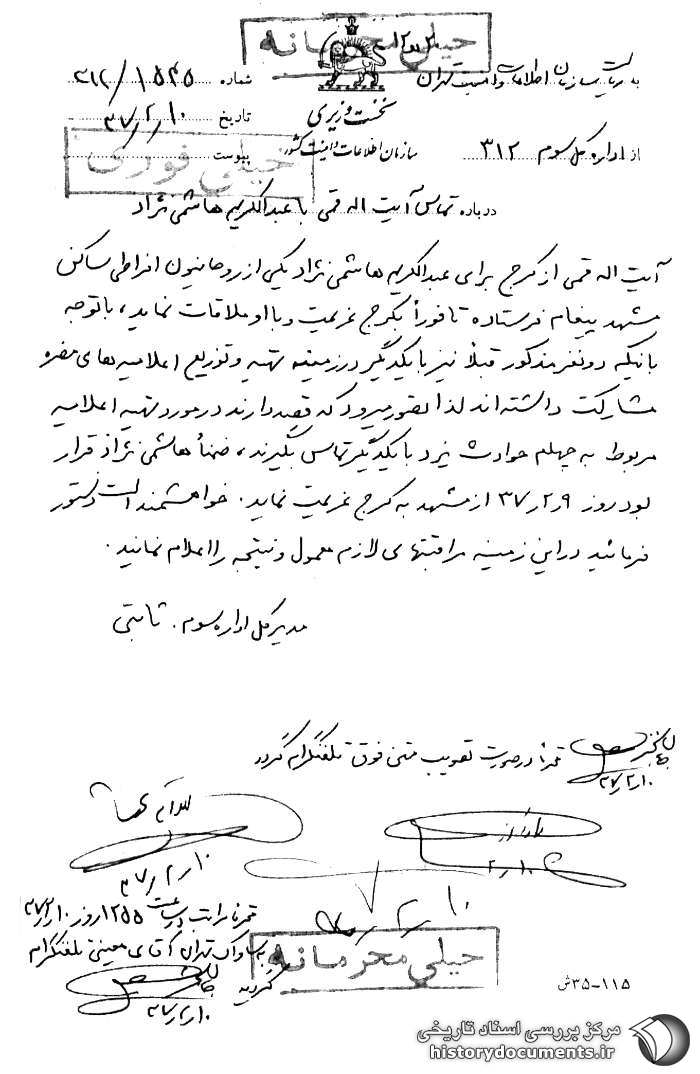 خیلی محرمانه
به ریاست سازمان اطلاعات و امنیت تهران
شماره ۳۱۲/۱۵۴۵
نخست وزیری
تاریخ ۳۷/۲/۱۰
از اداره کل سوم ۳۱۲
سازمان اطلاعات و امنیت کشور
پیوست
خیلی فوری
درباره تماس آیت اله قمی با عبدالکریم هاشمی نژاد
آیت اله قمی از کرج برای عبدالکریم هاشمی نژاد یکی از روحانیون افراطی ساکن
مشهد پیغام فرستاده تا فوراً بکرج عزیمت و با او ملاقات نماید، باتوجه
باینکه دونفر مذکور قبلاً نیز با یکدیگر در زمینه تهیه و توزیع اعلامیه های مضره
مشارکت داشته اند لذا تصور میرود که قصد دارند در مورد تهیه اعلامیه
مربوط به چهلم حوادث یزد با یکدیگر تماس بگیرند، ضمناً هاشمی نژاد قرار
بود روز ۳۷٫۲٫۹ از مشهد به کرج عزیمت نماید. خواهشمند است دستور
فرمائید در این زمینه مراقبتهای لازم معمول و نتیجه را اعلام نمائید.
مدیرکل اداره سوم. ثابتی
در صورت تصویب متن فوق تلفنگرام گردد
۳۷/۲/۱۰
۳۷/۲/۱۰
۲/۱۰
۲/۱۰
مراتب در ساعت ۱۲۵۵ روز ۳۷/۲/۱۰
به ساواک تهران آقای معینی تلفنگرام
گردید
۳۷/۲/۱۰
خیلی محرمانه
۱۱۵-۳۵ش
مرکز بررسی اسناد تاریخی
historydocuments.ir